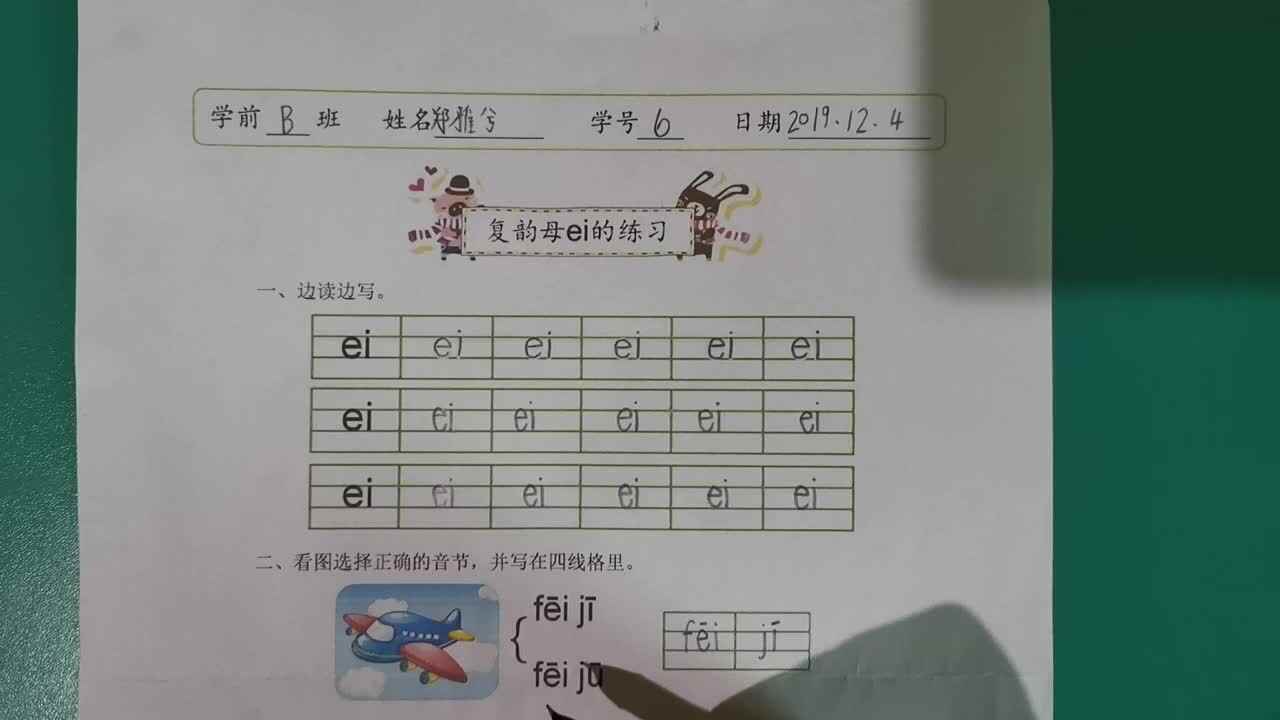 学前 B 班 姓名郑雅兮 学号 6 日期 2019.12.4
复韵母ei的练习
一、边读边写。
ei ei ei ei ei ei
ei ei ei ei ei ei
ei ei ei ei ei ei
二、看图选择正确的音节，并写在四线格里。
fēi jī
fēi jī
fēi jū